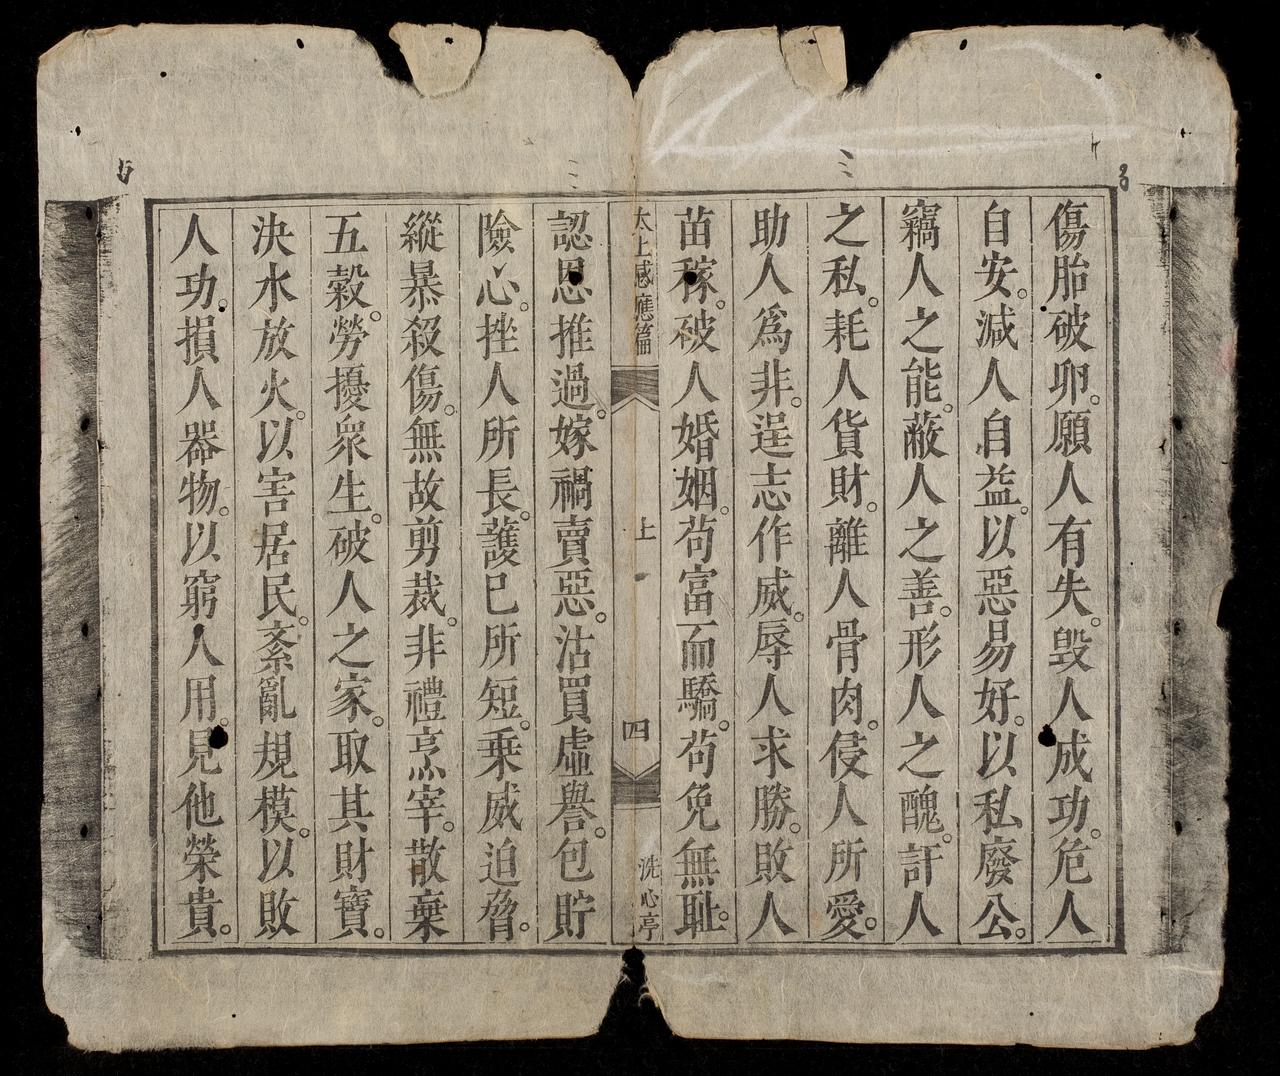 傷胎破卵。願人有失。毀人成功。危人
自安。減人自益。以惡易好。以私廢公。
竊人之能。蔽人之善。形人之醜。訐人
之私。耗人貨財。離人骨肉。侵人所愛。
助人爲非。逞志作威。辱人求勝。敗人
苗稼。破人婚姻。苟富而驕。苟免無恥。
太上感應篇 上 四 洗心亭
認恩推過。嫁禍賣惡。沽買虛譽。包貯
險心。挫人所長。護已所短。乗威迫脅。
縱暴殺傷。無故剪裁。非禮烹宰。散棄
五穀。勞擾衆生。破人之家。取其財寶。
決水放火。以害居民。紊亂規模。以敗
人功。損人器物。以窮人用。見他榮貴。